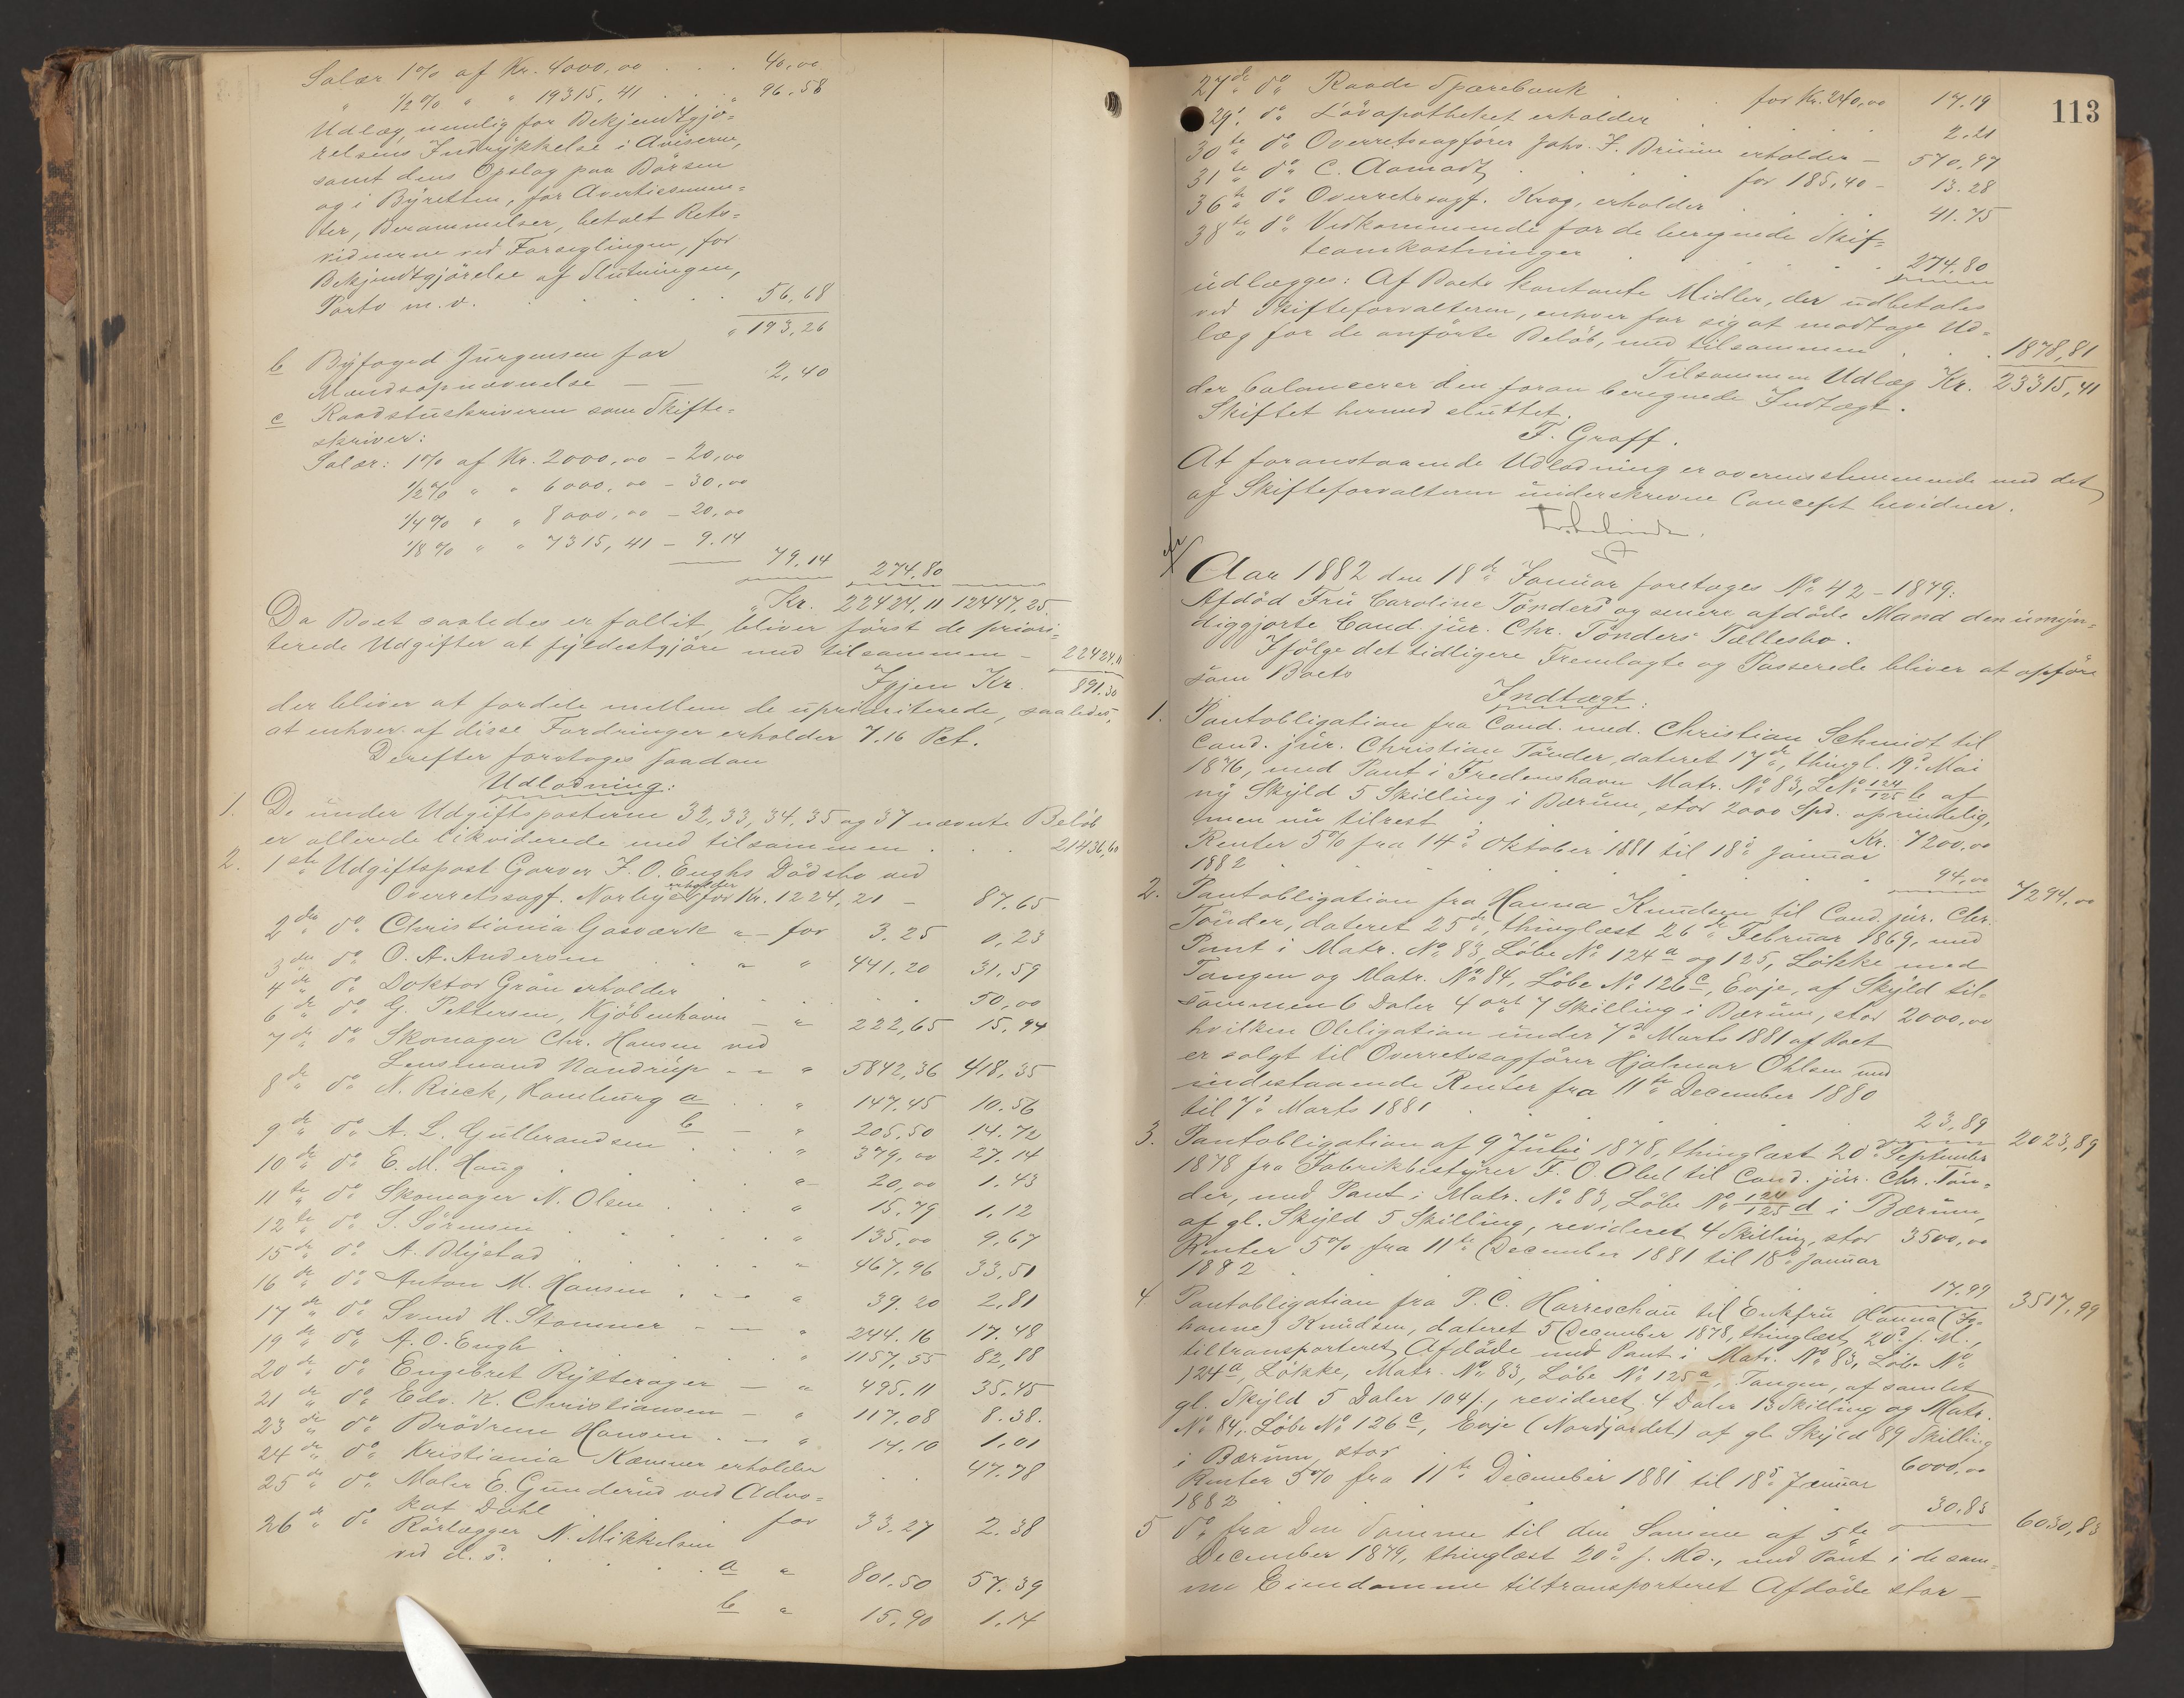 Salær 1% af Kr. 4000,00 . . . 40,00
" 1/2% " " 19315,41 . . . " 96.58
Udlæg, nemlig for Bekjendtgjö-
relsens Indrykkelse i Aviserne,
samt dens Opslag paa Börsen
og i Byretten, for Avertissemen-
ter, Berammelser, betalt Rets-
vidnerne ved Forseglingen, for
Bekjendtgjörelse af Slutningen,
Porto m.v. . . . 56,68
" 193,26
b Byfoged Jürgensen for
Mandsopnævnelse — — 2,40
c Raadstuskriveren som Skifte-
skriver:
Salær: 1% af Kr. 2000,00 - 20,00
1/2% " " 6000,00 - 30,00
1/4% " " 8000,00 - 20,00
1/8% " " 7315,41 - 9.14
79.14 274.80
" Kr. 22424,11 12447,25.
Da Boet saaledes er fallit, bliver först de priori-
terede Udgifter at fyldestgjöre med tilsammen - 22424,11
Igjen Kr. 891.30
der bliver at fordele mellem de upriori­terede, saaledes,
at enhver af disse Fordringer erholder 7.16 Pct.
Derefter foretoges saadan
Udlodning:
1. De under Udgiftsposterne 32, 33, 34, 35 og 37 nævnte Belöb
er allerede likviderede med tilsammen . . . 21436,60
2. 1ste Udgiftspost Garver F. O. Enghs Dödsbo ved
Overretssagf. Norbye erholder for Kr. 1224,21 - 87.65
2den do Christiania Gasværk " - for 3.25 0,23
3die do O. A. Andersen . " " 441.20 31,59
4de do Doktor Grön erholder . . . 50,00
6te do G. Pettersen, Kjöbenhavn - " 222,65 15.94
7de do Skomager Chr. Hansen ved
Lensmand Nandrup - - " 5842,36 418,35
8de do N. Rieck, Hamburg a . . " 147.45 10.56
b - " 205.50 14.72
9de do A. L. Gulbrandsen . . . " 379,00 27.14
10de do E. M. Haug . . . " 20,00 1.43
11te do Skomager N. Olsen . . . " 15.79 1.12
12te do S. Sörensen . . . " 135,00 9.67
15de do A. Blystad . . . " 467.96 33,51
16de do Anton M. Hansen . - " 39.20 2,81
17de do Svend H. Stammer - - " 244.16 17.48
19de do A. O. Engh . . . " 1157,55 82,88
20de do Engebret Rysterager - " 495.11 35.45
21de do Edv. K. Christiansen - " 117.08 8.38.
23de do Brödrene Hansen . - " 14.10 1,01
24de do Kristiania Kæmner erholder . . 47.78
25de do Maler E. Gunderud ved Advo-
kat Dahl . . . for 33.27 2.38
26de do Rörlægger N. Mikkelsen
ved d. s. . . . a " 801.50 57.39
b " 15.90 1.14
113
27de do Raade Sparebank . . . for Kr. 240,00 17.19
29de do Lövapotheket erholder . . . 2.21
30te do Overretssagförer Johs. F. Bruun erholder - 570.97
31te do C. Aamodt . . . for 185,40 - 13.28
36te do Overretssagf. Krog, erholder . . . 41.75
38te do Vedkommende for de beregnede Skif-
teomkostninger . . . 274.80
udlægges: Af Boets kontante Midler, der udbetales
ved Skifteforvalteren, enhver for sig at modtage Ud-
læg for de anförte Belöb, med tilsammen . . 1878,81
Tilsammen Udlæg Kr. 23315,41
der balancerer den foran beregnede Indtægt.
Skiftet hermed sluttet.
F. Graff.
At foranstaaende Udlodning er overensstemmende med det
af Skifteforvalteren underskrevne Concept bevidner.
Aar 1882 den 18de Januar foretoges No 42 - 1879:
Afdöd Fru Caroline Tönders og senere afdöde Mand den umyn-
diggjorte Cand. jur. Chr. Tönders Fællesbo.
Ifölge det tidligere Fremlagte og Passerede bliver at opföre
som Boets
Indtægt:
1. Pantobligation fra Cand. med. Christian Schmidt til
Cand. jur. Christian Tönder, dateret 17de, thingl. 19de Mai
1876, med Pant i Fredenshavn Matr. No 83, L. No 124/125 b af
ny Skyld 5 Skilling i Bærum, stor 2000 Spd. oprindelig,
men nu tilrest . . . Kr. 7200,00
Renter 5% fra 14de Oktober 1881 til 18de Januar
1882 . . . 94,00 7294,00
2. Pantobligation fra Hanna Knudsen til Cand. jur. Chr.
Tönder, dateret 25de, thinglæst 26de Februar 1869, med
Pant i Matr. No 83, Löbe No 124a og 125, Lökke med
Tangen og Matr. No 84, Löbe No 126c, Evje, af Skyld til-
sammen 6 Daler 4 ort 7 Skilling i Bærum, stor 2000,00
hvilken Obligation under 7de Marts 1881 af Boet
er solgt til Overretssagförer Hjalmar Ohlsen med
indestaaende Renter fra 11te December 1880
til 7de Marts 1881 . . . 23,89 2023,89
3. Pantobligation af 9 Juli 1878, thinglæst 20de September
1878 fra Fabrikbestyrer F. O. Olsd til Cand. jur. Chr. Tön-
der, med Pant i Matr. No 83, Löbe No 124/125 d i Bærum,
af gl. Skyld 5 Skilling, revideret 4 Skilling, stor 3500,00
Renter 5% fra 11te December 1881 til 18de Januar
1882 . . . 17.99 3517,99
4. Pantobligation fra P. C. Harreschou til Enkefru Hanna (Jo-
hanne) Knudsen, dateret 5 December 1878, thinglæst 20de s. M.,
tiltransporteret Afdöde med Pant i Matr. No 83, Löbe No
124a, Lökke, Matr. No 83, Löbe No 125a, Tangen, af samlet
gl. Skyld 5 Daler 104 s., revideret 4 Daler 13 Skilling og Matr.
No 84, Löbe No 126c, Evje (Nordjordet) af gl. Skyld 89 Skilling
i Bærum, stor . . . 6000,00
Renter 5% fra 11te December 1881 til 18de Januar
1882 . . . 30.83 6030,83
5 do fra Den Samme til den Samme af 5te
December 1879, thinglæst 20de s. Md., med Pant i de sam-
me Eiendomme tiltransporteret Afdöde stor —